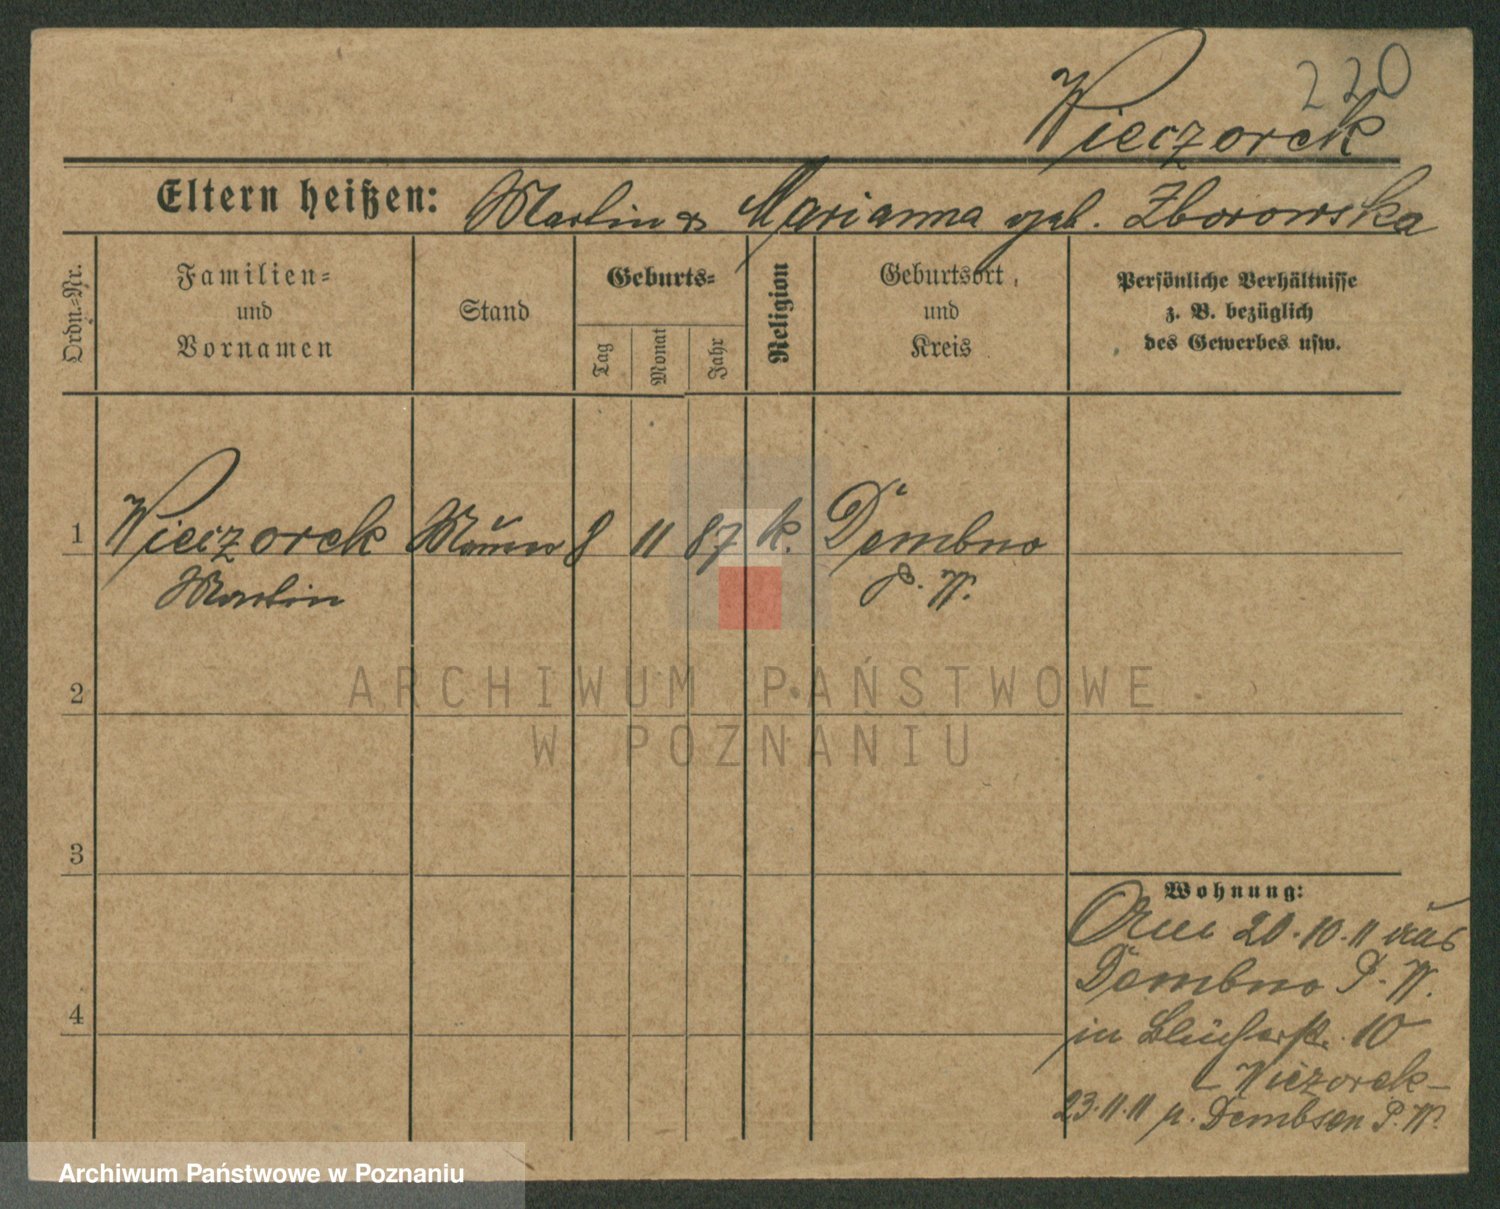 220
Wieczorek
Eltern heißen: Martin & Marianna geb. Zborowska
Ordn.-Nr.
Familien-
und
Vornamen
Stand
Geburts-
Tag
Monat
Jahr
Religion
Geburtsort,
und
Kreis
Persönliche Verhältnisse
z. B. bezüglich
des Gewerbes usw.
1 Wieczorek Maurer 8 11 87 k. Dembno
Martin P. W.
ARCHIWUM PAŃSTWOWE
W POZNANIU
2
3
4
Wohnung:
20.10.11 aus
Dembno P. W.
in Blücherstr. 10
- Wieczorek -
23.11.11 n. Dembsen P. W.
Archiwum Państwowe w Poznaniu